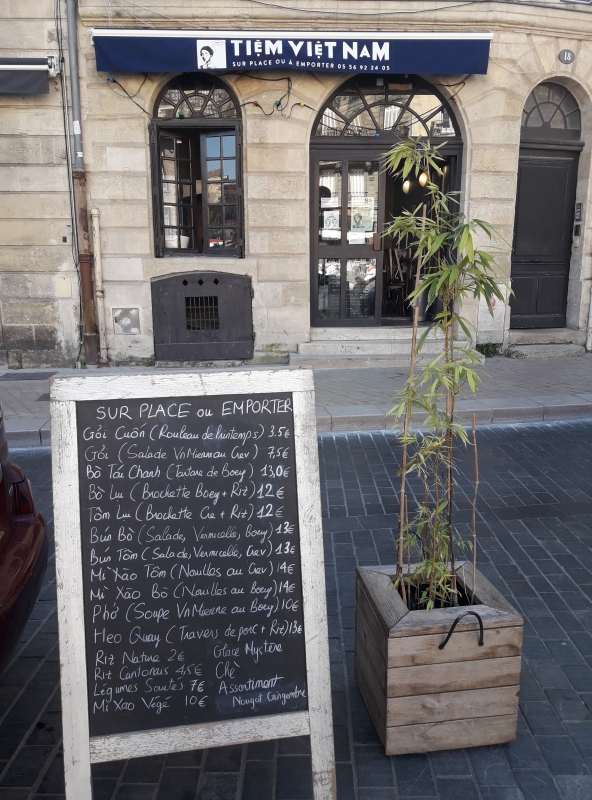 TIỆM VIỆT NAM
SUR PLACE OU À EMPORTER 05 56 92 24 05
18
SUR PLACE ou EMPORTER
Gỏi Cuốn (Rouleau de Printemps) 3.5€
Gỏi (Salade VnMienne au Crev) 7,5€
Bò Tái Chanh (Tartare de Boeuf) 13,0€
Bò Lụi (Brochette Boeuf + Riz) 12€
Tôm Lụi (Brochette Cre + Riz) 12€
Bún Bò (Salade, Vermicelle, Boeuf) 13€
Bún Tôm (Salade, Vermicelle, Crev) 13€
Mì Xào Tôm (Nouilles au Crev) 14€
Mì Xào Bò (Nouilles au Boeuf) 14€
Phở (Soupe VnMienne au Boeuf) 10€
Heo Quay (Travers de porc + Riz) 13€
Riz Nature 2€
Riz Cantonais 4,5€
Légumes Sautés 7€
Mì Xào Végé 10€
Glace Mystère
Chè
Assortiment
Nougat Gingembre